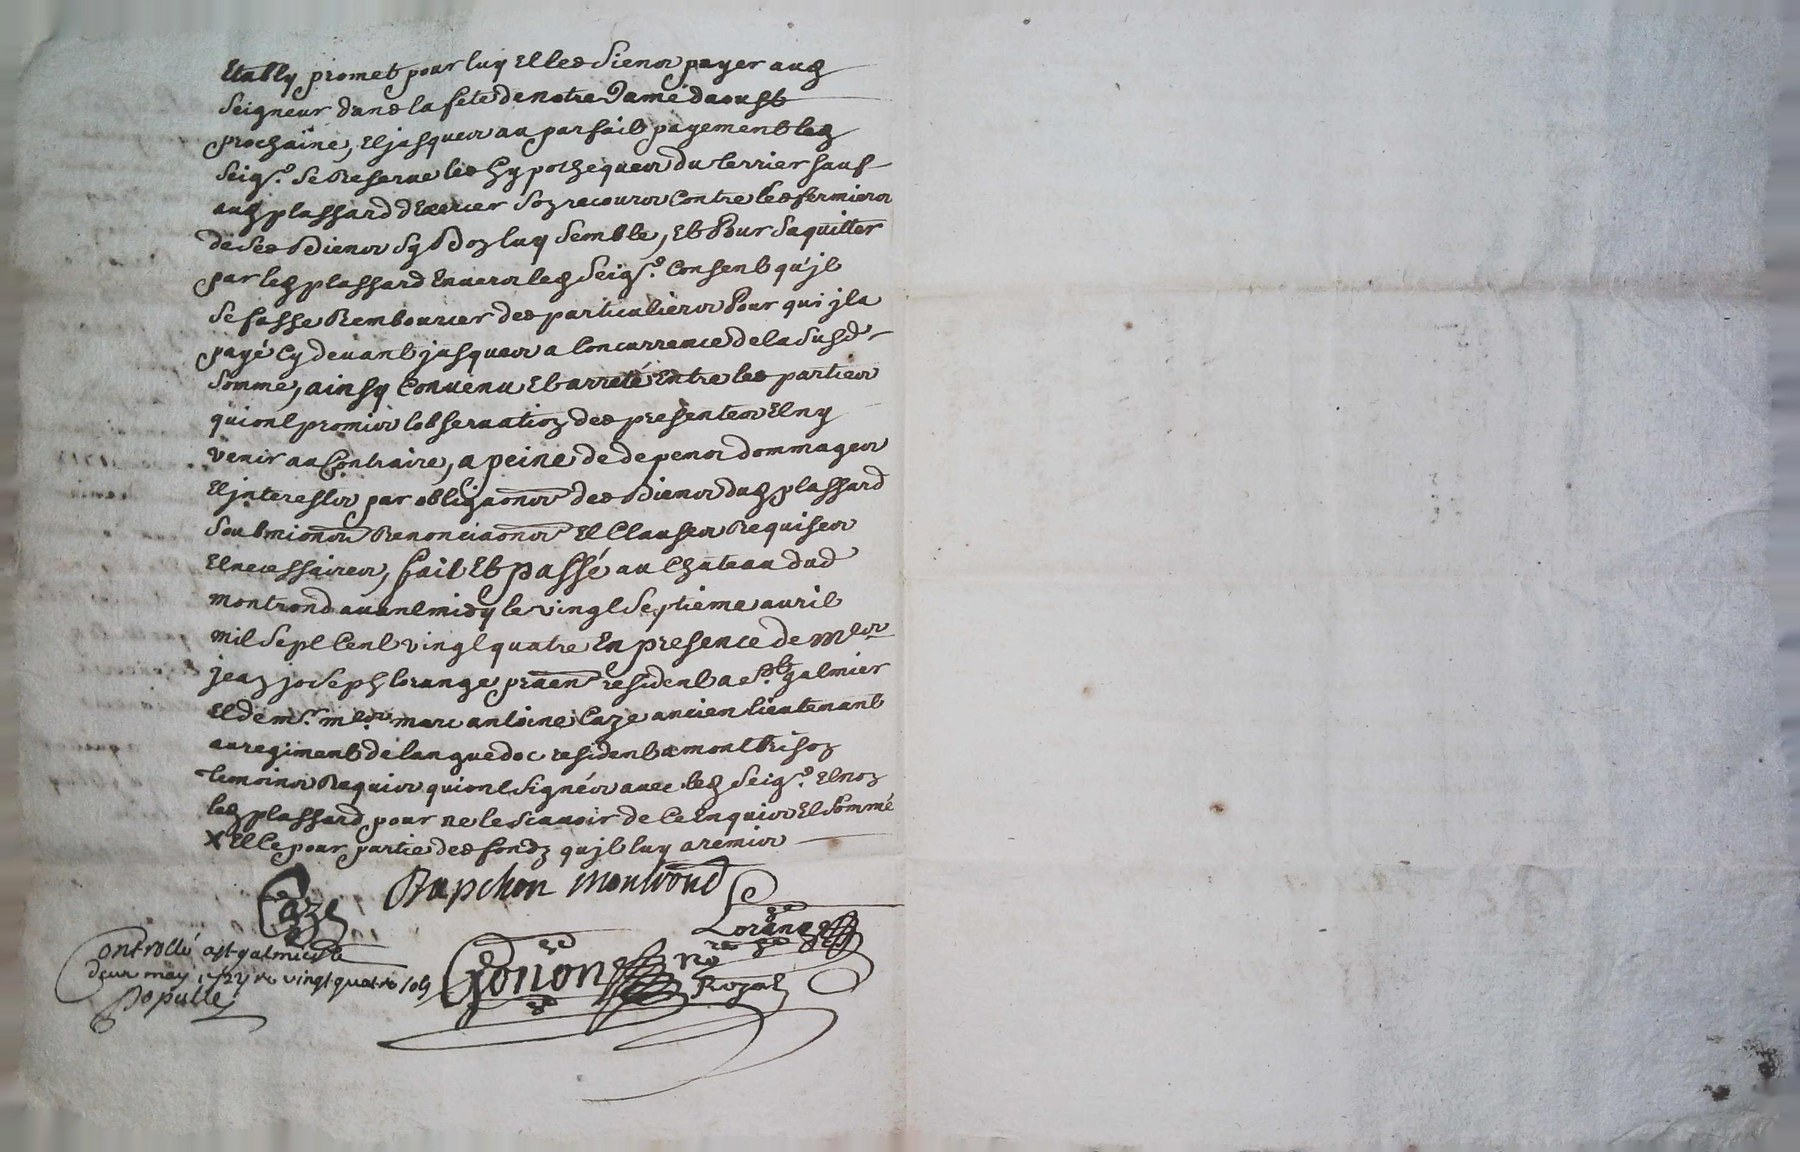 Etably promet pour luy et les siens payer aud
Seigneur dans la fete de notre dame daoust
prochaine, et jusques au parfait payement led
Seigr. se Reserve les hypotheques du terrier sauf
aud plassard dExercer son recours Contre les fermiers
de ses Biens sy Bon luy semble, Et Pour saquitter
par led plassard Envers led Seigr. Consent qu'jl
se fasse Rembourcer des particuliers Pour qui jl a
payé Cy devant jusques a Concurrence de la susd
somme, ainsy Convenu Et arreté Entre les parties
qui ont promis lobservation des presentes Et ny
venir au Contraire, a peine de depens dommages
Et jnterests par obligaons des Biens dud plassard
soubmions Renonciaons Et Clauses Requises
Et necessaires, fait Et passé au Chateau dud
montrond avant midy le vingt septieme avril
mil sept Cent vingt quatre En presence de Me
jean joseph lorange resident a St galmier
Et de mr. marc antoine Caze ancien lieutenant
au regiment de languedoc resident a montbrison
temoins Requis qui ont signés avec led Seigr. Et non
led plassard pour ne le scavoir de ce Enquis Et sommé
X Et Ce pour partie des fonds qu'jl luy a remis
Caze
Apchon montrond
Lorange
Controllé a st galmier le
deux may 1724 vingt quatre sols
Gonon
no
Royal